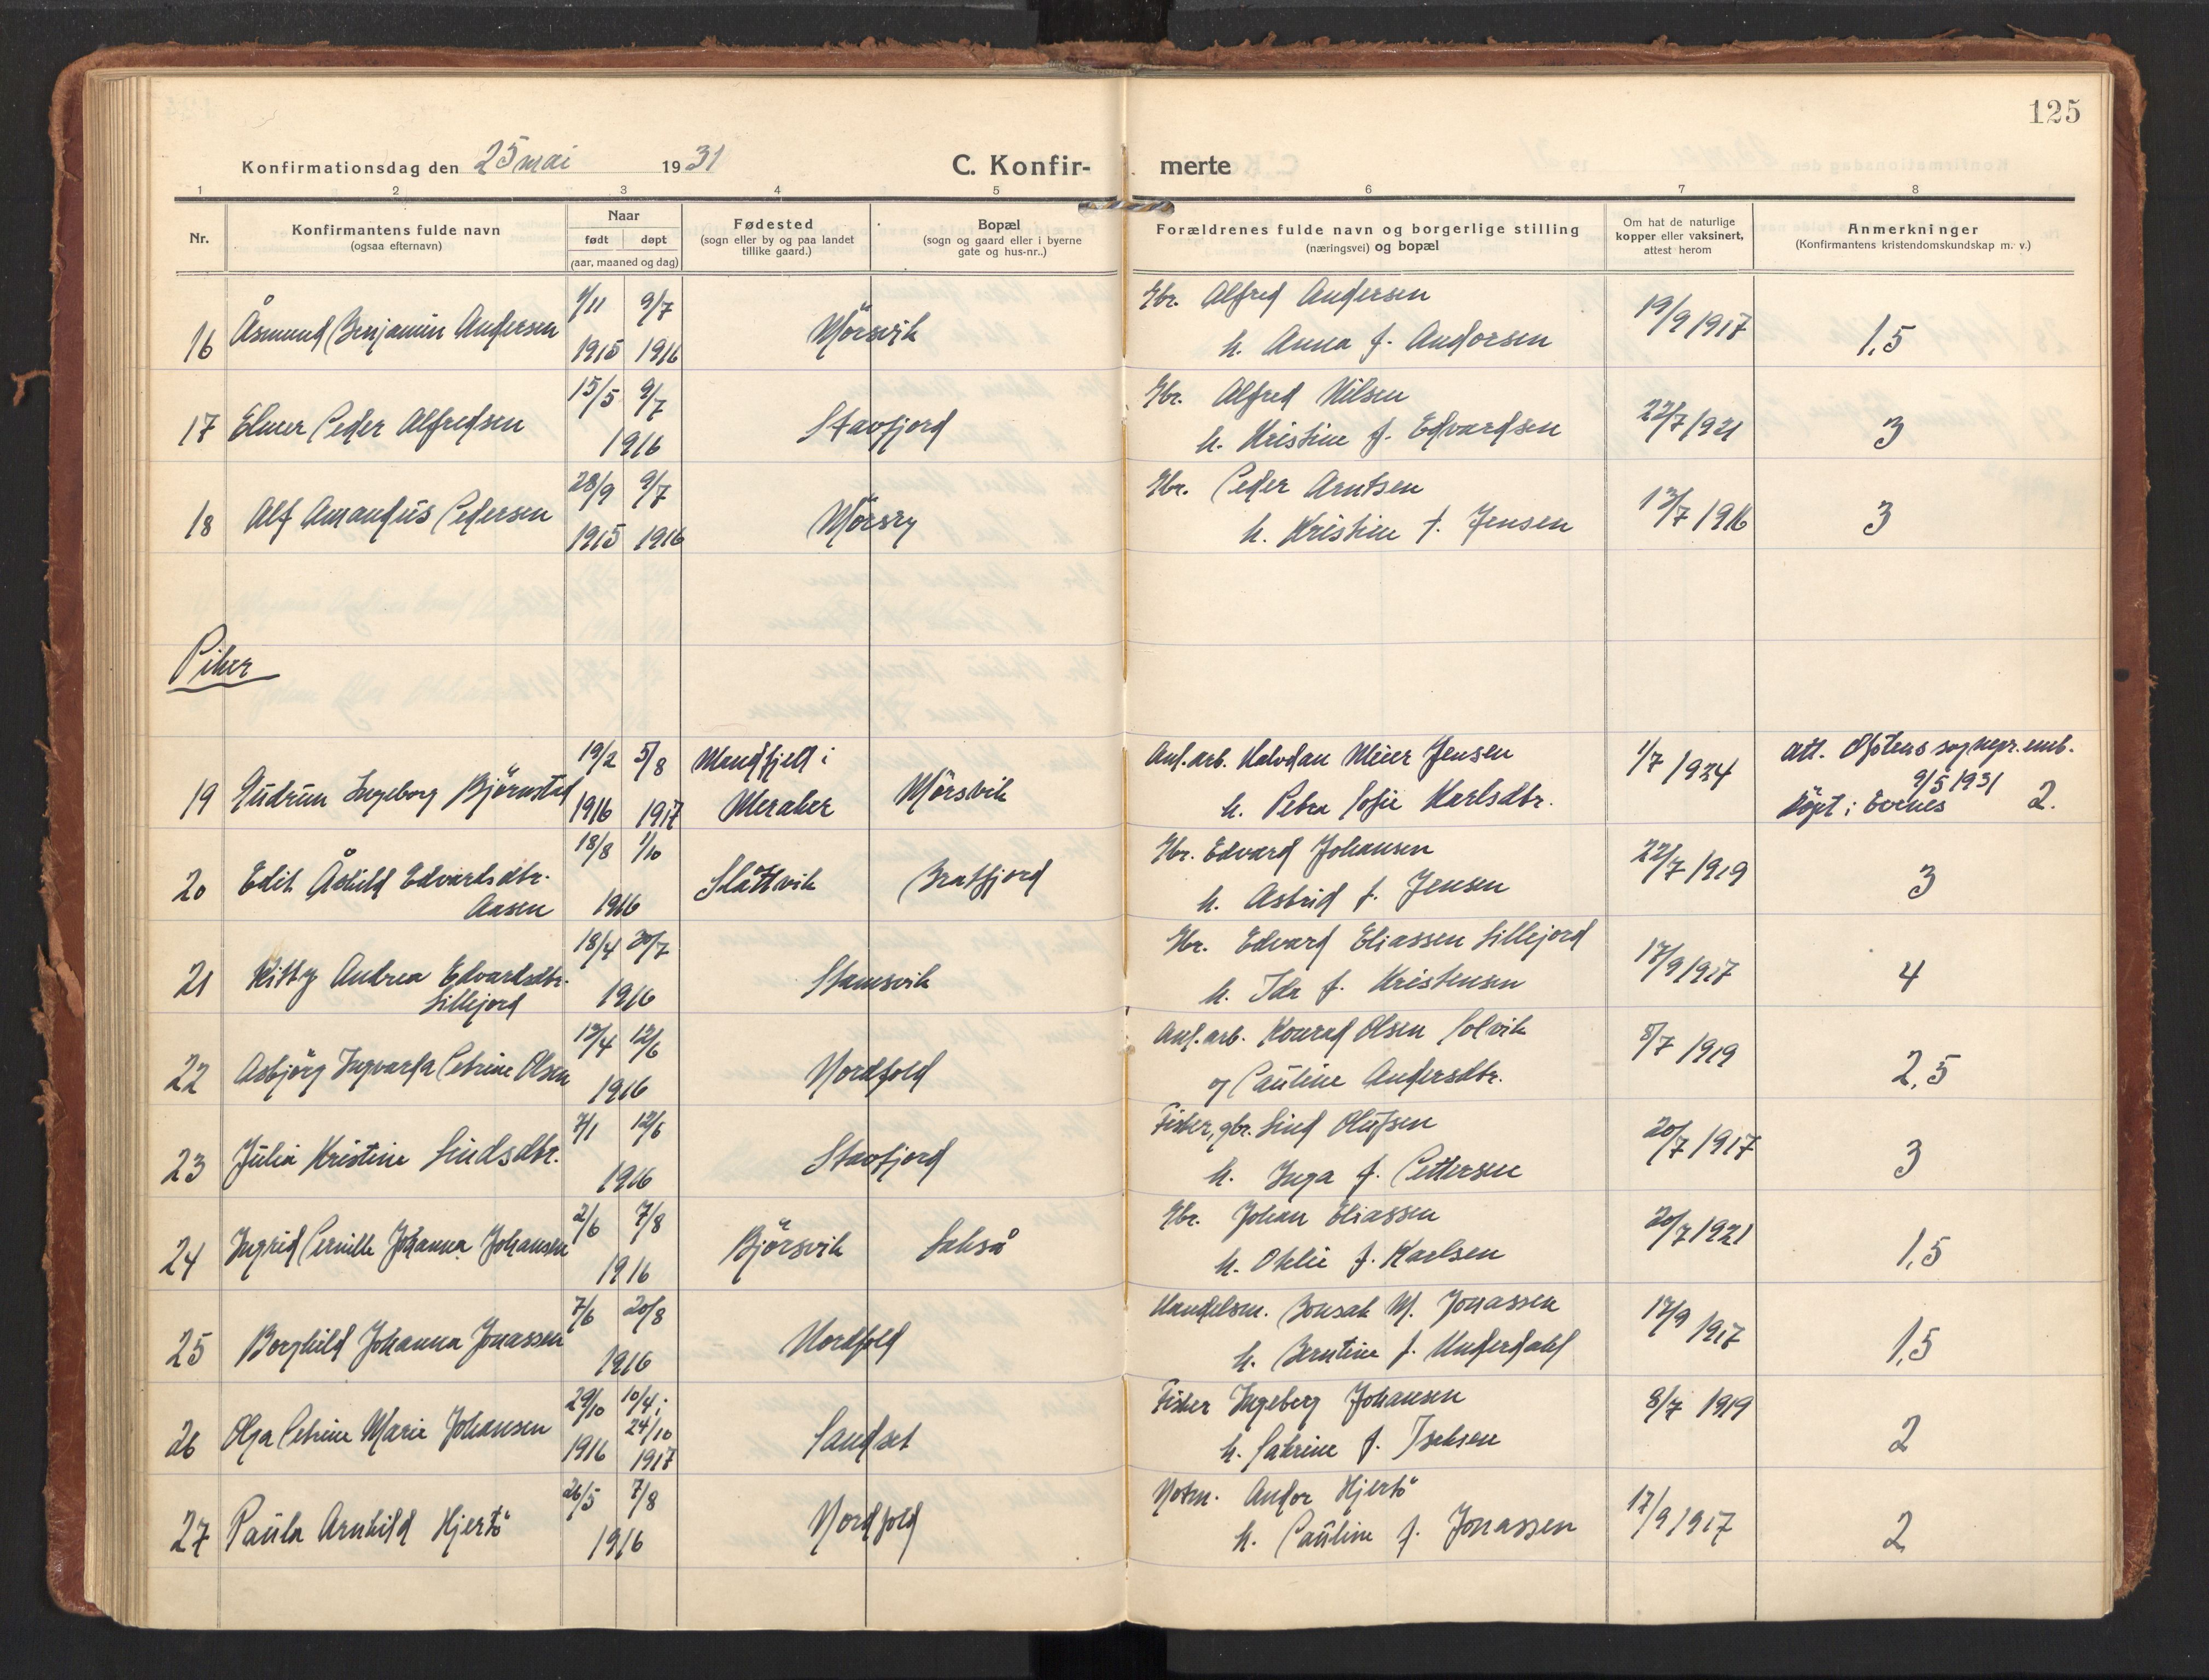 125
Konfirmationsdag den 25 mai 1931
C. Konfir- merte
1 2 3 4 5 6 7 8
Nr.
Konfirmantens fulde navn
(ogsaa efternavn)
Naar
født døpt
(aar, maaned og dag)
Fødested
(sogn eller by og paa landet
tillike gaard.)
Bopæl
(sogn og gaard eller i byerne
gate og hus-nr..)
Forældrenes fulde navn og borgerlige stilling
(næringsvei) og bopæl
Om hat de naturlige
kopper eller vaksinert,
attest herom
Anmerkninger
(Konfirmantens kristendomskundskap m. v.)
16 Åsmund Benjamin Andersen /11 1915 9/7 1916 Mørsvik
Gbr. Alfred Andersen
h. Anna f. Andorsen
19/9 1917 1,5
17 Elmer Peder Alfredsen 15/5 9/7 1916 Stavfjord
Gbr. Alfred Nilsen
h. Kristine f. Edvardsen
22/7 1921 3
18 Alf Amandus Pedersen 28/9 1915 9/7 1916 Mørsry
Gbr. Peder Arntsen
h. Kristine f. Jensen
13/7 1916 3
Piker
19 Gudrun Ingeborg Bjørnstad 19/2 1916 5/8 1917
Mandfjell i
Meraker
Mørsvik
Anl. arb. Halvdan Meier Jensen
h. Petra Sofie Karlsdtr.
1/7 1924
att. Ofotens sognepr. emb.
9/5 1931
døpt i Evenes 2.
20 Edit Åshild Edvardsdtr.
Aasen
18/8 1/10 1916 Slåttvik Bratfjord
Gbr. Edvard Johansen
h. Astrid f. Jensen
22/7 1919 3
21 Kitty Andrea Edvardsdtr.
Lillejord
18/4 30/7 1916 Stamsvik
Gbr. Edvard Eliassen Lillejord
h. Ida f. Kristensen
17/9 1917 4
22 Asbjørg Ingvarda Petrine Olsen 13/4 12/6 1916 Nordfold
Anl. arb. Konrad Olsen Solvik
og Pauline Andersdtr.
8/7 1919 2,5
23 Julia Kristine Lindsdtr. 7/1 12/6 1916 Stavfjord
Fisker, gbr. Lind Olufsen
h. Inga f. Pettersen
20/7 1917 3
24 Ingrid Pernille Johanna Johansen 2/6 7/8 1916 Bjørsvik Lakså
Gbr. Johan Eliassen
h. Otelie f. Karlsen
20/7 1921 1,5
25 Borghild Johanna Jonassen 7/6 20/8 1916 Nordfold
Handelsm. Bonsak M. Jonassen
h. Berntine f. Underdahl
17/9 1917 1,5
26 Olga Petrine Marie Johansen 29/10 1916 10/4; 24/10 1917 Sandset
Fisker Ingeberg Johansen
h. Katrine f. Isaksen
8/7 1919 2
27 Paula Arnhild Hjertø 26/5 7/8 1916 Nordfold
Notm. Andor Hjertø
h. Pauline f. Jonassen
17/9 1917 2